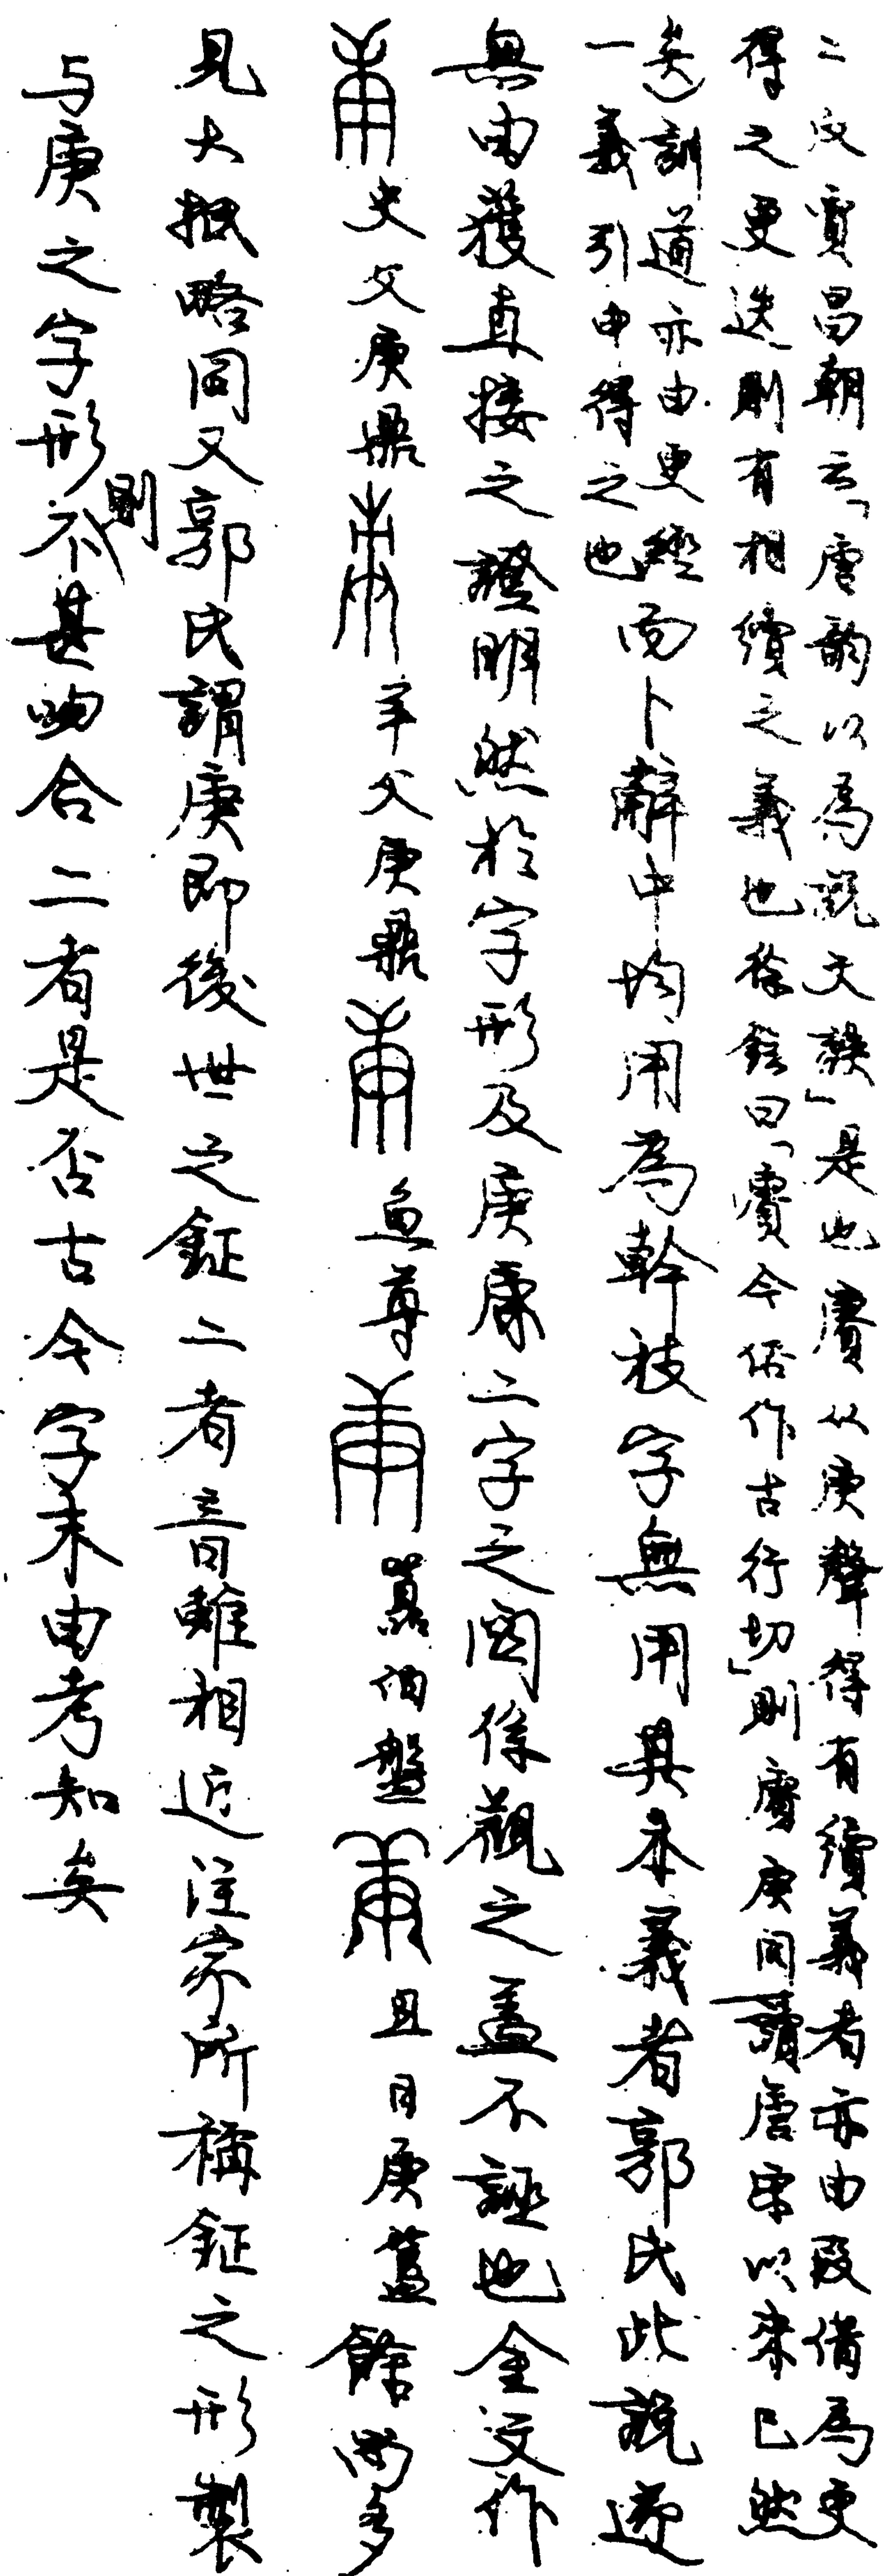 二反賈昌朝云「唐韵以為說文誤」是也賡从庚聲得有續義者亦由叚借為更
得之更迭則有相續之義也徐鉉曰「賡今俗作古行切」則賡庚同讀唐宋以來已然
矣)訓道亦由更經
一義引申得之也
而卜辭中均用為幹枝字無用其本義者郭氏此說遽
無由獲直接之證明然於字形及庚康二字之関係觀之蓋不誣也金文作
史父庚鼎 羊父庚鼎 魚尊 伯盤 且日庚簋餘尚多
見大抵略同又郭氏謂庚即後世之鉦二者音雖相近注家所稱鉦之形製
与庚之字形則不甚吻合二者是否古今字末由考知矣